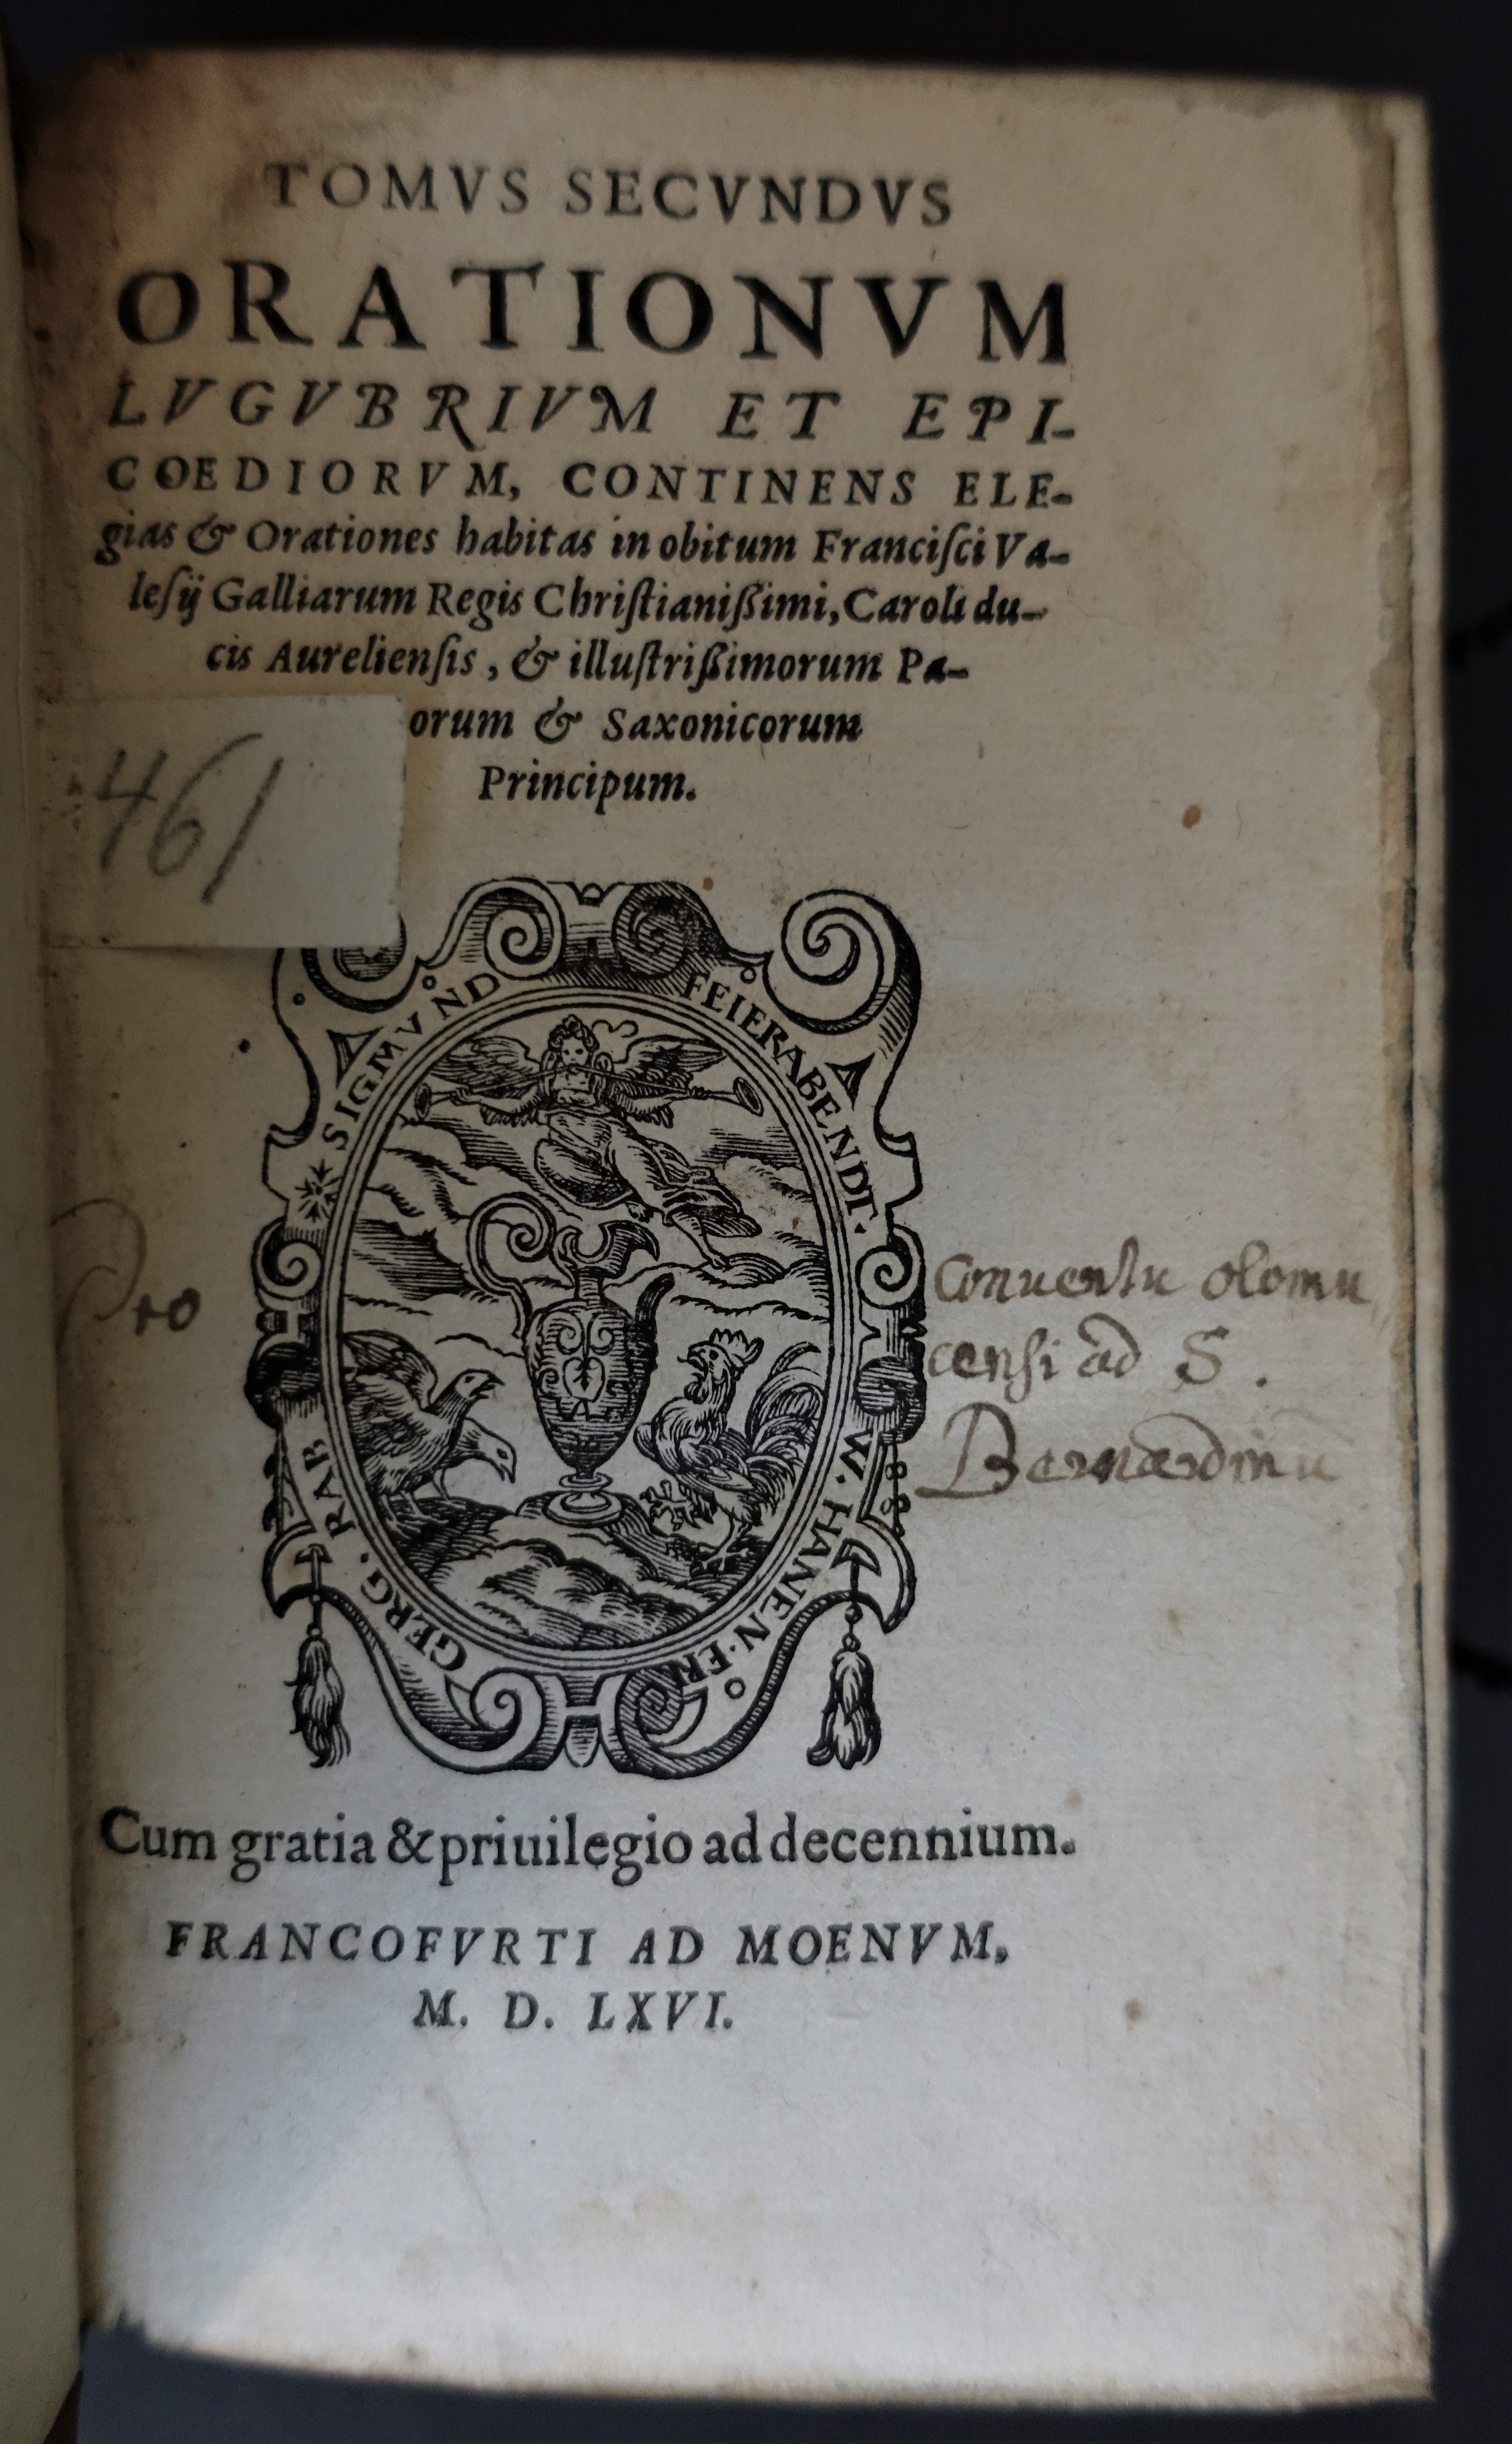 TOMVS SECVNDVS
ORATIONVM
LVGVBRIVM ET EPI-
COEDIORVM, CONTINENS ELE-
gias & Orationes habitas in obitum Franciſci Va-
leſij Galliarum Regis Chriſtianißimi, Caroli du-
cis Aurelienſis, & illuſtrißimorum Pa-
orum & Saxonicorum
Principum.
461
SIGMVND FEIERABENDT.
GERG. RAB
W. HANEN. ER
Pro Conuentu olomu
censi ad S.
Bernardinū
Cum gratia & priuilegio ad decennium.
FRANCOFVRTI AD MOENVM,
M. D. LXVI.